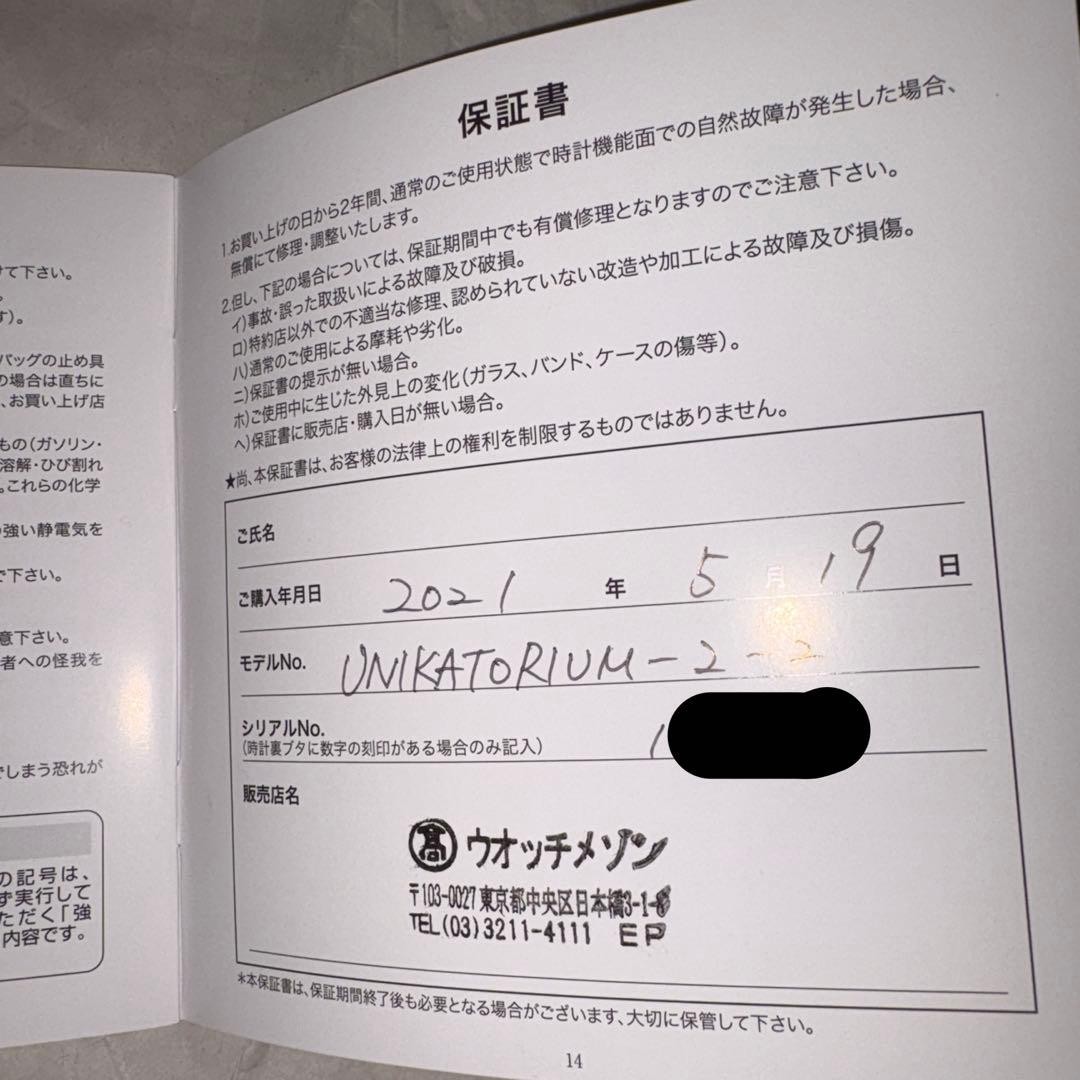 けて下さい。
す)。
バッグの止め具
の場合は直ちに
、お買い上げ店
もの(ガソリン・
溶解・ひび割れ
。これらの化学
の強い静電気を
で下さい。
意下さい。
者への怪我を
でしまう恐れが
の記号は、
ず実行して
ただく「強
内容です。
保証書
1.お買い上げの日から2年間、通常のご使用状態で時計機能面での自然故障が発生した場合、
無償にて修理・調整いたします。
2.但し、下記の場合については、保証期間中でも有償修理となりますのでご注意下さい。
イ)事故・誤った取扱いによる故障及び破損。
ロ)特約店以外での不適当な修理、認められていない改造や加工による故障及び損傷。
ハ)通常のご使用による摩耗や劣化。
ニ)保証書の提示が無い場合。
ホ)ご使用中に生じた外見上の変化(ガラス、バンド、ケースの傷等)。
ヘ)保証書に販売店・購入日が無い場合。
★尚、本保証書は、お客様の法律上の権利を制限するものではありません。
ご氏名
ご購入年月日 2021 年 5 月 19 日
モデルNo. UNIKATORIUM-2-2
シリアルNo.
(時計裏ブタに数字の刻印がある場合のみ記入) 1
販売店名
髙 ウオッチメゾン
〒103-0027 東京都中央区日本橋3-1-
TEL(03)3211-4111 EP
*本保証書は、保証期間終了後も必要となる場合がございます、大切に保管して下さい。
14